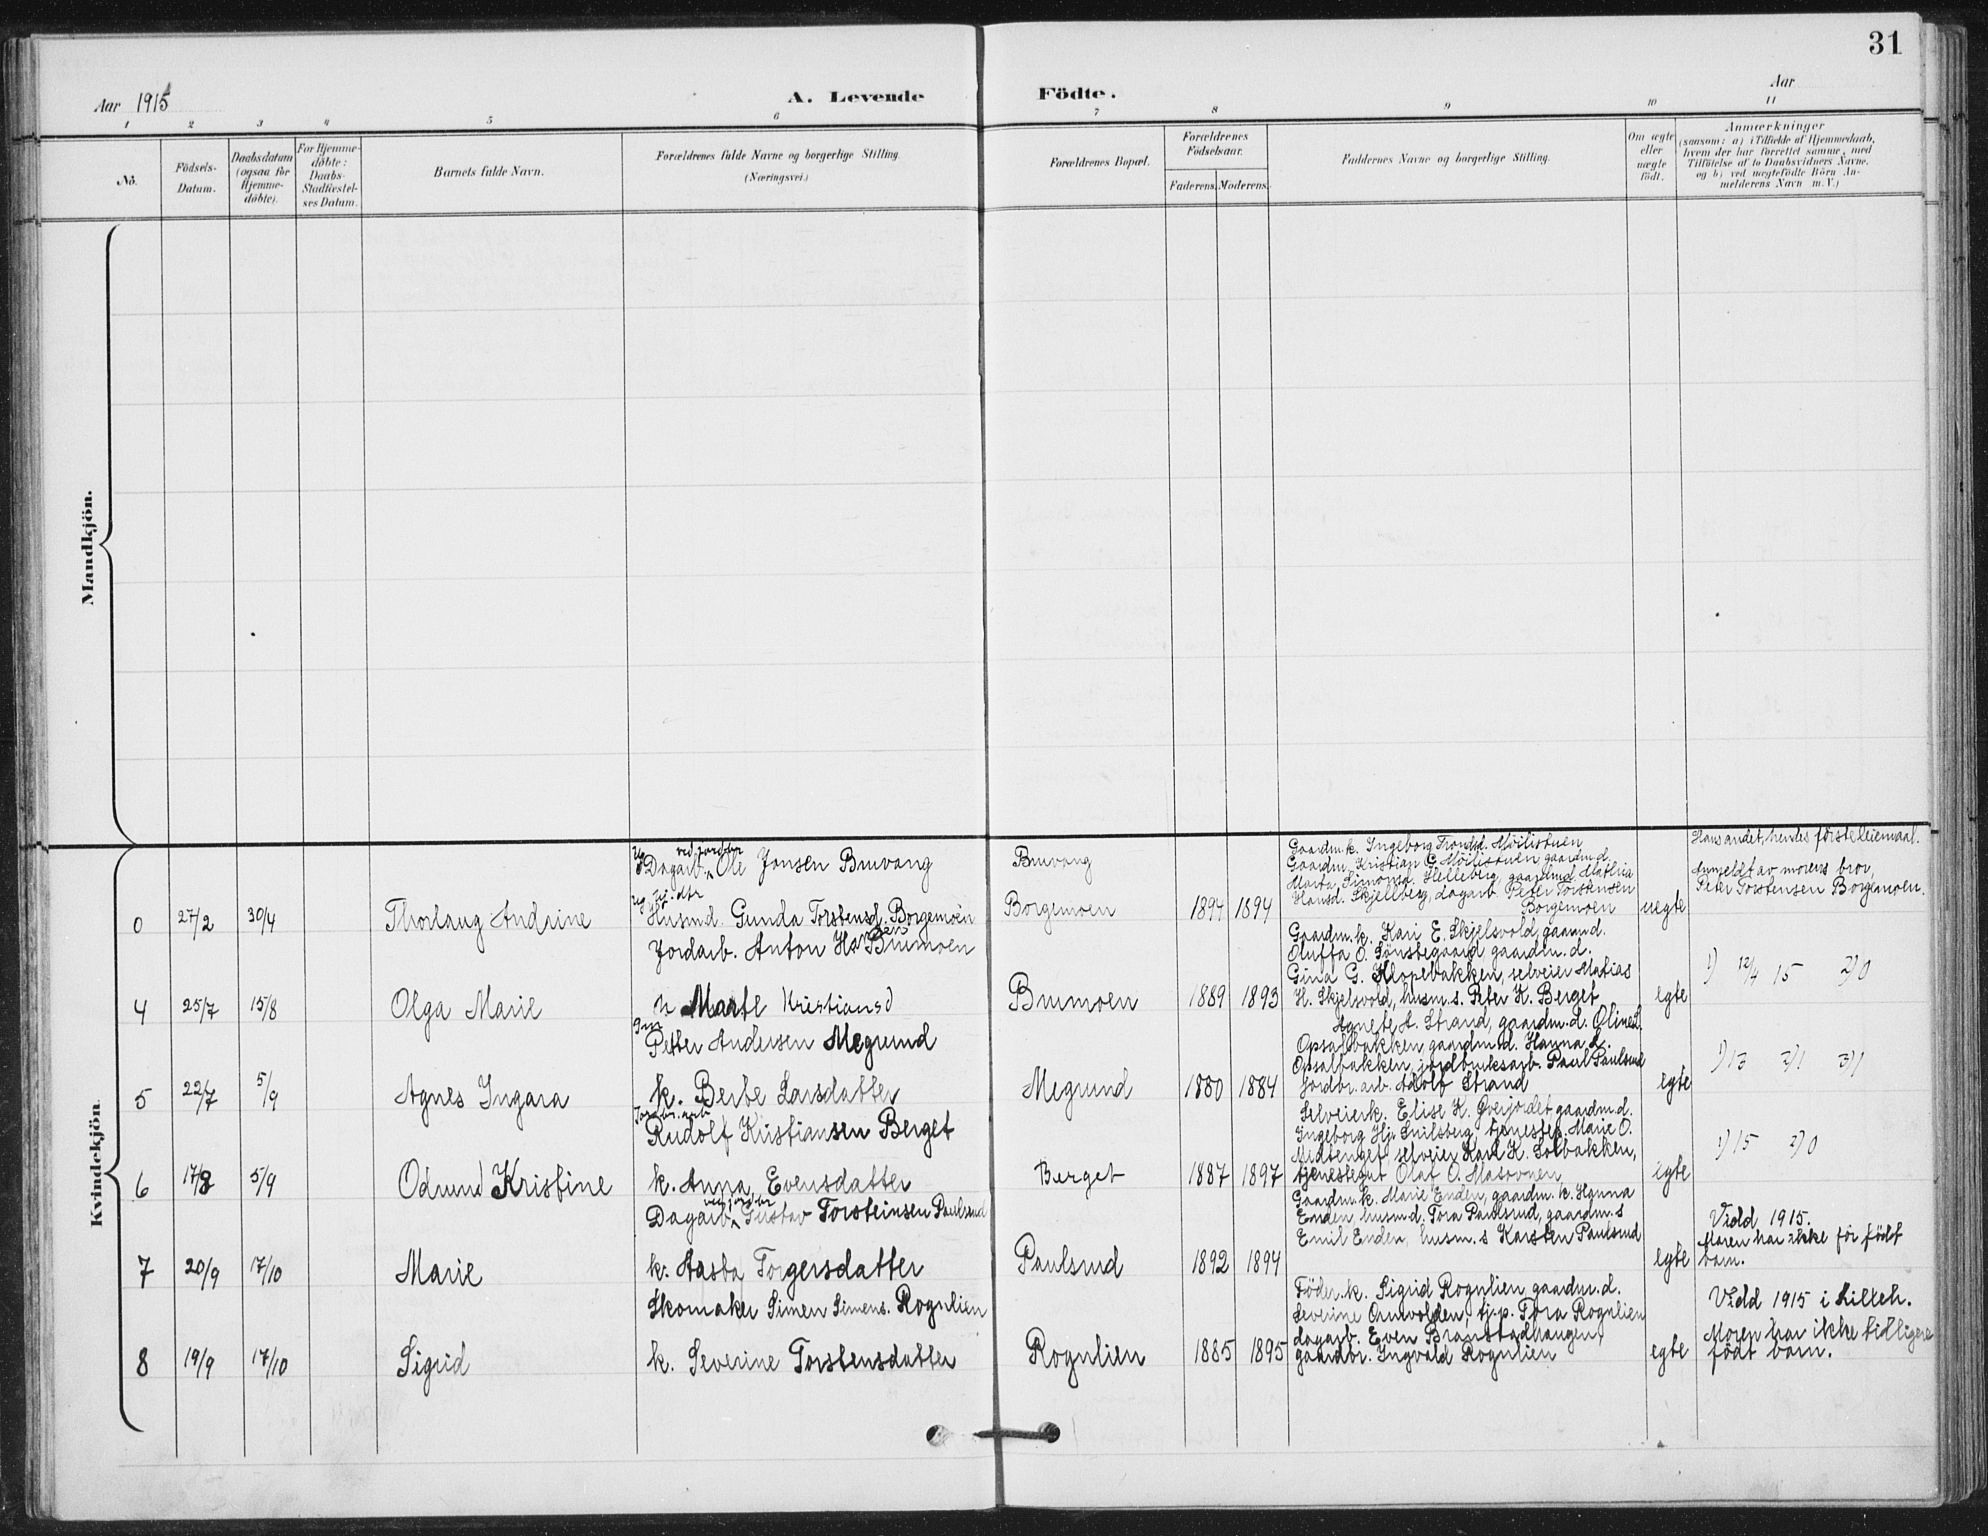 31
Aar 1915
A. Levende Födte.
Aar
1 2 3 4 5 6 7 8 9 10 11
No.
Födsels-Datum.
Daabsdatum (ogsaa for Hjemme-döbte).
For Hjemme-döbte: Daabs-Stadfæstel-ses Datum.
Barnets fulde Navn.
Forældrenes fulde Navne og borgerlige Stilling. (Næringsvei.)
Forældrenes Bopæl.
Forældrenes Födselsaar.
Faderens. Moderens.
Faddernes Navne og borgerlige Stilling.
Om ægte eller uægte födt.
Anmærkninger
(saasom: a) i Tilfælde af Hjemmedaab,
hvem der har forrettet samme, med
Tilföielse af to Daabsvidners Navne.
og b) ved uægtefödte Börn An-
melderens Navn m. V.)
Mandkjön.
Kvindekjön.
Ug. Dagarb. ved jordbr. Ole Jonsen Bruvang
Bruvang
Gaardm.k. Ingeborg Trondsd. Möilistuen
Gaardm. Kristian G. Möilistuen gaardm.d.
Marta Simonsd. Helleberg, gaardmd Mathia
Hansd. Skjellberg, dagarb. Peter Torstensen
Borgemoen
Hans andet, hendes första leiermaal.
Anmeldt av morens bror,
Peter Torstensen Borgemoen.
0 27/2 30/4 Thorlaug Andrine
Husmd. Gunda Torstensd. Borgemoen
Borgemoen 1894 1894 uegte
Jordarb. Anton Hansen Brumoen
Gaardm.k. Kari E. Skjelsvold, gaarmd.
Oluffa O. Tönstegaard gaardm.d.
Gina G. Klopbakken, selveier Matias
H. Skjelsvold, husm.s. Peter K. Berget
1) 12/4 15 2) 0
4 25/7 15/8 Olga Marie
k Marte Kristiansd
Brumoen 1889 1893 egte
Petter Andersen Megrund
Agnete A. Strand, gaardm.d. Oline L.
Opsalbakken gaardmd. Hanna L.
Opsalbakken, jordbruksarb. Paul Paulsrud
jordbr.arb. Adolf Strand
1) 13 2) 1 3) 1
5 22/7 5/9 Agnes Ingara
k. Berte Larsdatter
Megrund 1880 1884 egte
Jordbr.arb. Rudolf Kristiansen Berget
Selveierk. Elise K. Gverjordet gaardm.d.
Ingeborg Hjr. Snilsberg, tjenestep. Marie O.
Midtenget, selveier Karl K. Solbakken,
tjenestegut Olaf O. Masovnen
1) 15 2) 0
6 17/8 5/9 Odrund Kristine
k. Anna Evensdatter
Berget 1887 1897 egte
Dagarb. ved jordbr. Gustav Torsteinsen Paulsrud
Gaardm.k. Marie Enden, gaardm.k. Hanna
Enden, husm.d. Tora Paulsrud, gaardm.s
Emil Enden, husm.s Karsten Paulsrud
Vidd 1915.
Moren har ikke för födt
barn.
7 20/9 17/10 Marie
k. Aasta Torgersdatter
Paulsrud 1892 1894 egte
Skomaker Simen Simens. Rognlien
Föder.k. Sigrid Rognlien gaardm.d.
Severine Ornvolden, tj.p. Tora Rognlien
dagarb. Even Branstadhaugen,
gaardbr. Ingvald Rognlien
Vidd 1915 i Lilleh.
Moren har ikke tidligere
födt barn.
8 19/9 17/10 Sigrid
k. Severine Torstensdatter
Rognlien 1885 1895 egte